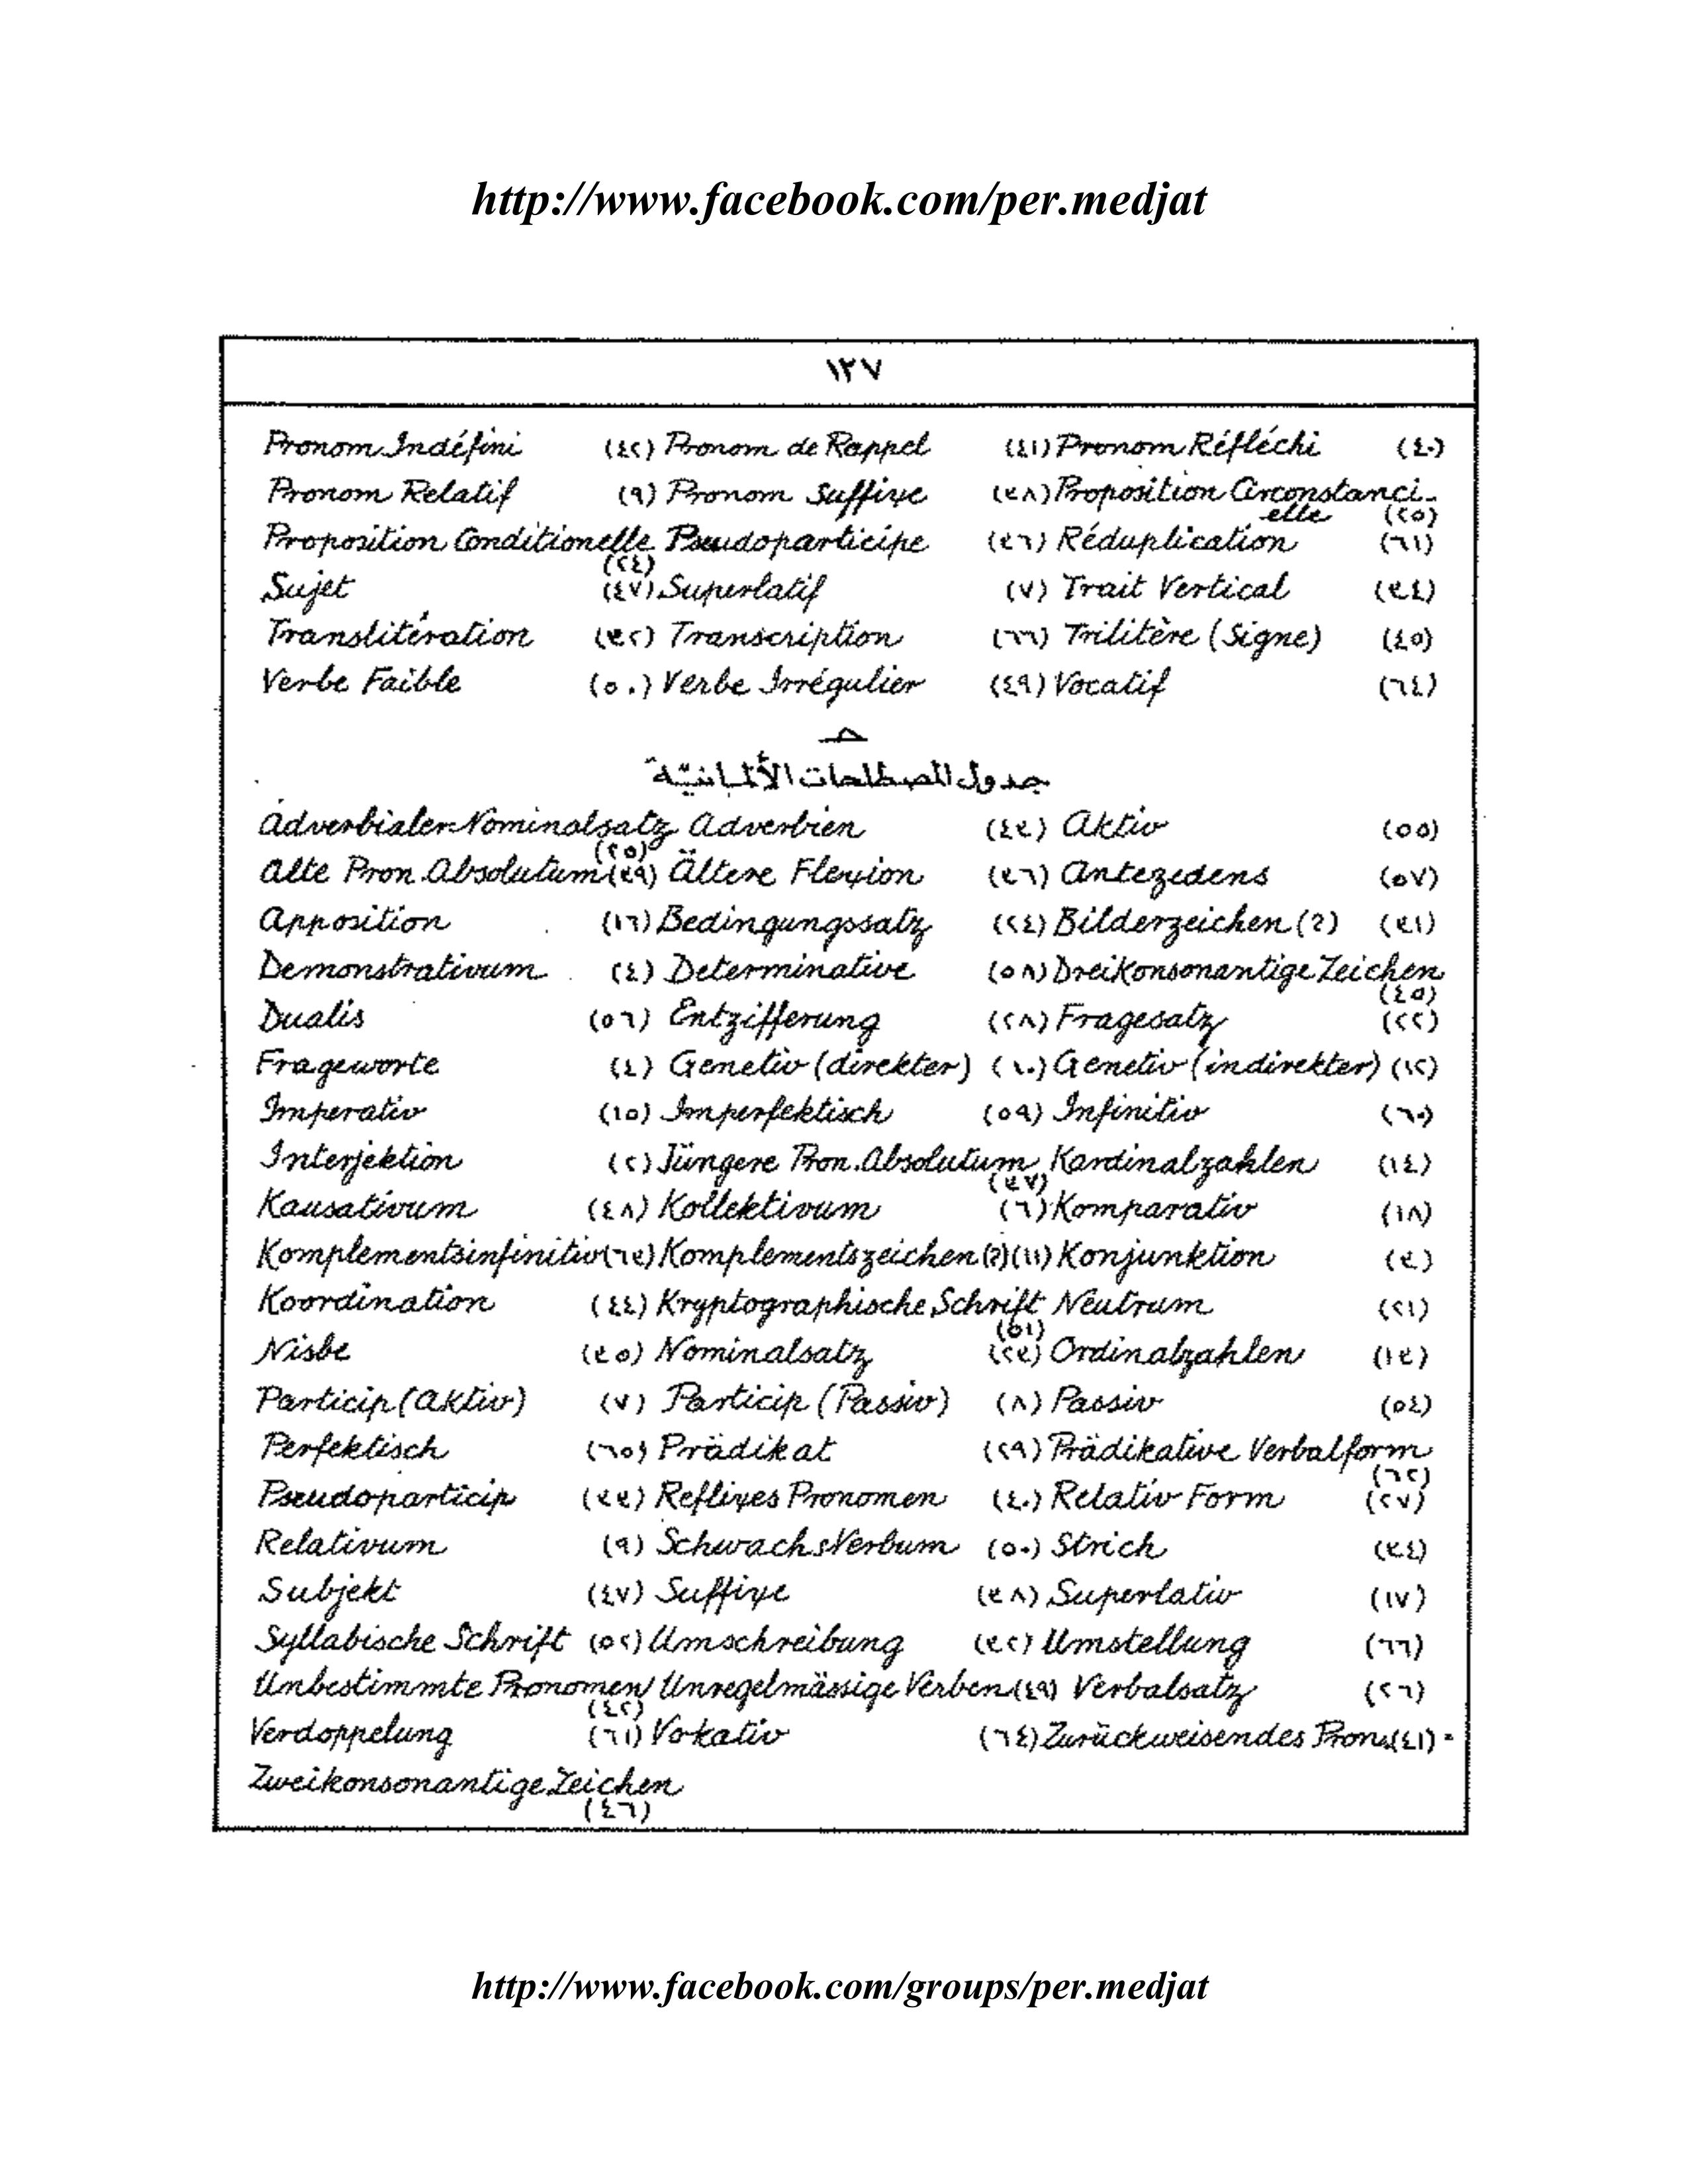 http://www.facebook.com/per.medjat
١٢٧
Pronom Indéfini (٤٢) Pronom de Rappel (٤١) Pronom Réfléchi (٤٠)
Pronom Relatif (٩) Pronom Suffixe (٣٨) Proposition Circonstanci-
elle (٢٥)
Proposition Conditionelle Pseudoparticipe (٣٦) Réduplication (٦١)
(٢٤)
Sujet (٤٧) Superlatif (٧) Trait Vertical (٣٤)
Translitération (٣٢) Transcription (٦٦) Trilitère (Signe) (٤٥)
Verbe Faible (٥٠) Verbe Irrégulier (٤٩) Vocatif (٦٤)
حـ
جدول المصطلحات الألمانيّة
Adverbialer Nominalsatz Adverbien (٤٣) Aktiv (٥٥)
(٢٥)
Alte Pron. Absolutum (٣٩) Ältere Flexion (٣٦) Antezedens (٥٧)
Apposition (١٦) Bedingungssatz (٢٤) Bilderzeichen (?) (٣١)
Demonstrativum (٤) Determinative (٥٨) Dreikonsonantige Zeichen
(٤٥)
Dualis (٥٦) Entzifferung (٢٨) Fragesatz (٢٢)
Frageworte (٤) Genetiv (direkter) (١٠) Genetiv (indirekter) (١٢)
Imperativ (١٥) Imperfektisch (٥٩) Infinitiv (٦٠)
Interjektion (٢) Jüngere Pron. Absolutum Kardinalzahlen (١٤)
(٣٧)
Kausativum (٤٨) Kollektivum (٦) Komparativ (١٨)
Komplementsinfinitiv (٦٣) Komplementszeichen (?) (١١) Konjunktion (٣)
Koordination (٤٤) Kryptographische Schrift Neutrum (٢١)
(٥١)
Nisbe (٣٥) Nominalsatz (٢٣) Ordinalzahlen (١٣)
Particip (Aktiv) (٧) Particip (Passiv) (٨) Passiv (٥٤)
Perfektisch (٦٥) Prädikat (٢٩) Prädikative Verbalform
(٦٢)
Pseudoparticip (٣٣) Reflixes Pronomen (٤٠) Relativ Form (٢٧)
Relativum (٩) Schwachs Verbum (٥٠) Strich (٣٤)
Subjekt (٤٧) Suffixe (٣٨) Superlativ (١٧)
Syllabische Schrift (٥٢) Umschreibung (٣٢) Umstellung (٦٦)
Umbestimmte Pronomen Unregelmässige Verben (٤٩) Verbalsatz (٢٦)
(٤٢)
Verdoppelung (٦١) Vokativ (٦٤) Zurückweisendes Pron. (٤١)
Zweikonsonantige Zeichen
(٤٦)
http://www.facebook.com/groups/per.medjat